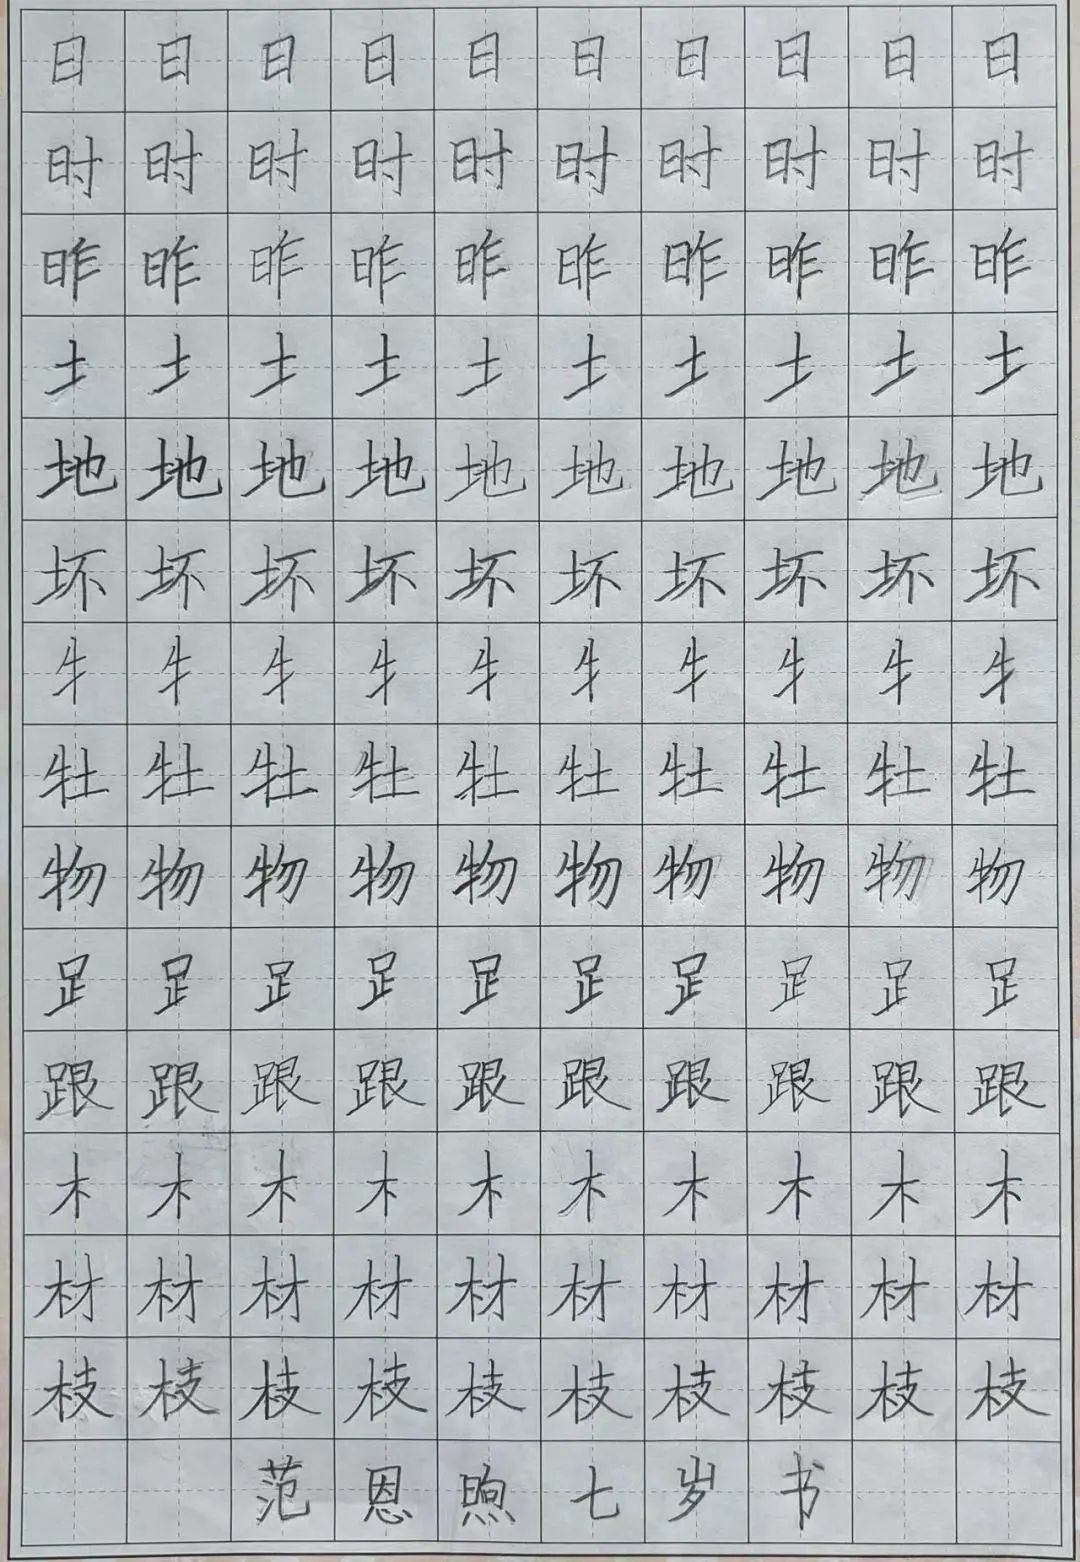 日日日日日日日日日日
时时时时时时时时时时
昨昨昨昨昨昨昨昨昨昨
土土土土土土土土土土
地地地地地地地地地地
坏坏坏坏坏坏坏坏坏坏
牛牛牛牛牛牛牛牛牛牛
牡牡牡牡牡牡牡牡牡牡
物物物物物物物物物物
足足足足足足足足足足
跟跟跟跟跟跟跟跟跟跟
木木木木木木木木木木
材材材材材材材材材材
枝枝枝枝枝枝枝枝枝枝
范恩煦七岁书